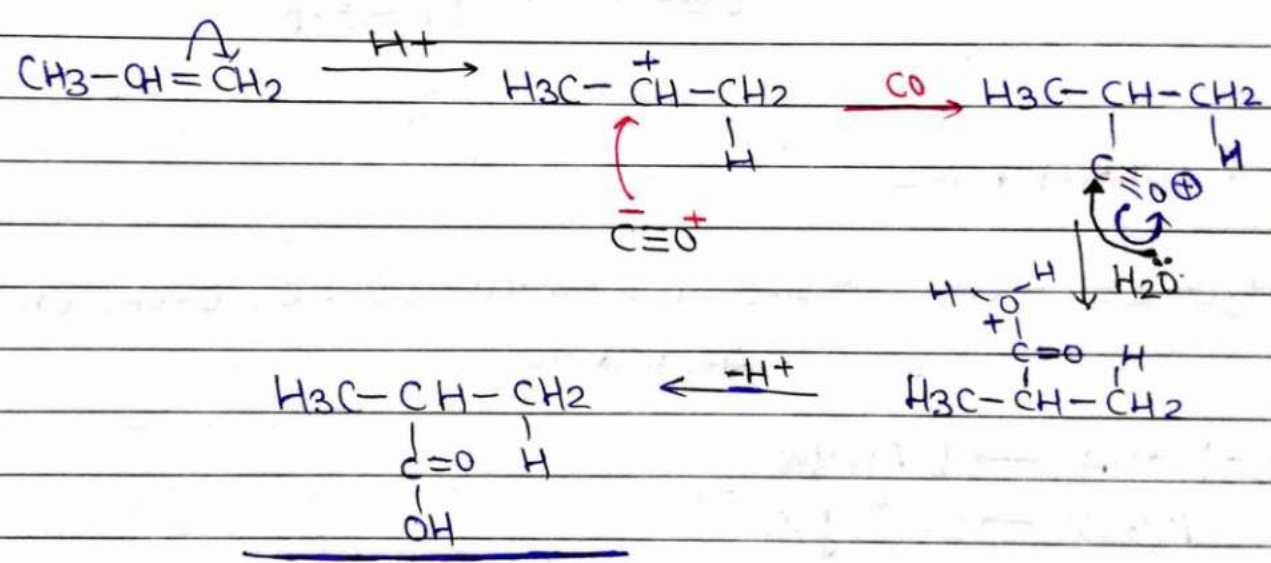 H+
CH3–CH=CH2 → H3C–CH–CH2 CO → H3C–CH–CH2
+
H
H
C≡O ⊕
– +
C≡O
H2O
H H
O
+
–H+
C=O H
H3C–CH–CH2 ← H3C–CH–CH2
C=O H
OH